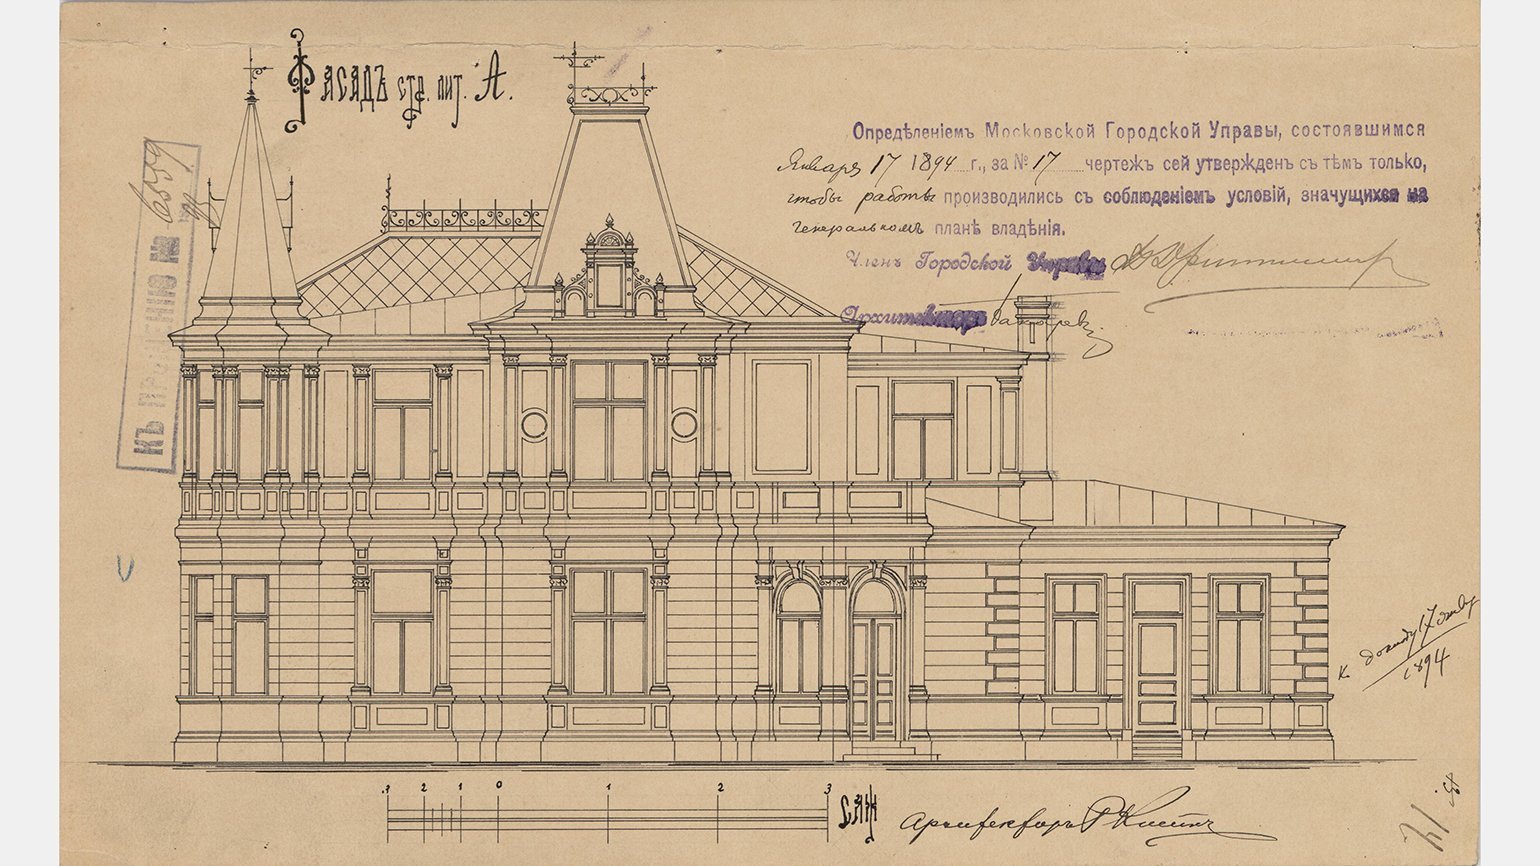 Фасадъ стр. лит. А.
Опредѣленіемъ Московской Городской Управы, состоявшимся
Января 17 1894 г., за № 17 чертежъ сей утвержденъ съ тѣмъ только,
чтобы работы производились съ соблюденіемъ условій, значущихся на
генеральномъ планѣ владѣнія.
Членъ Городской Управы
Архитекторъ
КЪ ПРОШЕНІЮ №
К докладу 17 Январ
1894
.1 2 1 0 1 2 3 САЖ
Архитекторъ Р Клейнъ
14